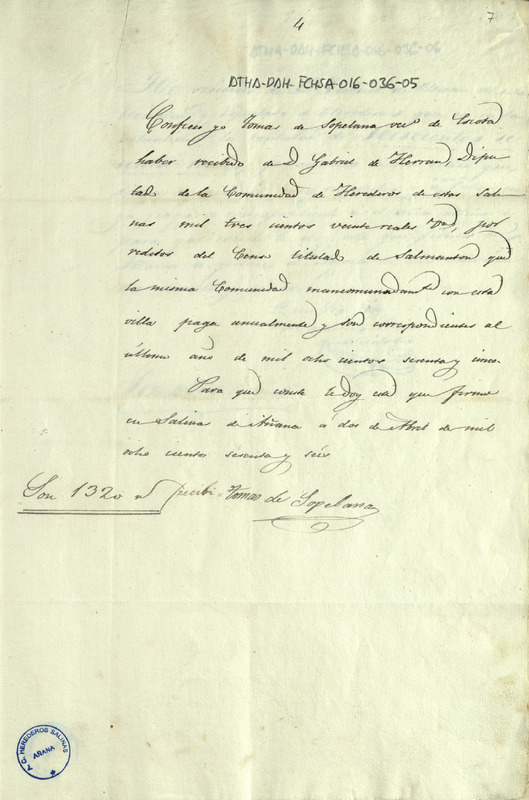 4
7
ATHA-DAH-FCHSA-016-036-05
Confieso yo Tomas de Sopelana vec.º de Escota
haber recibido de D Gabriel de Herran, Dipu
tad de la Comunidad de Herederos de estas Sali
nas mil tres cientos veinte reales Von, por
reditos del Censo titulad de Salmanton que
la misma Comunidad mancomunadamte con esta
villa paga anualmente y son correspondientes al
último año de mil ocho cientos sesenta y cinco.
Para que conste le doy esta que firmo
en Salinas de Añana á dos de Abril de mil
ocho cientos sesenta y seis
Son 1320 rs recibi = Tomas de Sopelana
A. C. HEREDEROS SALINAS
AÑANA